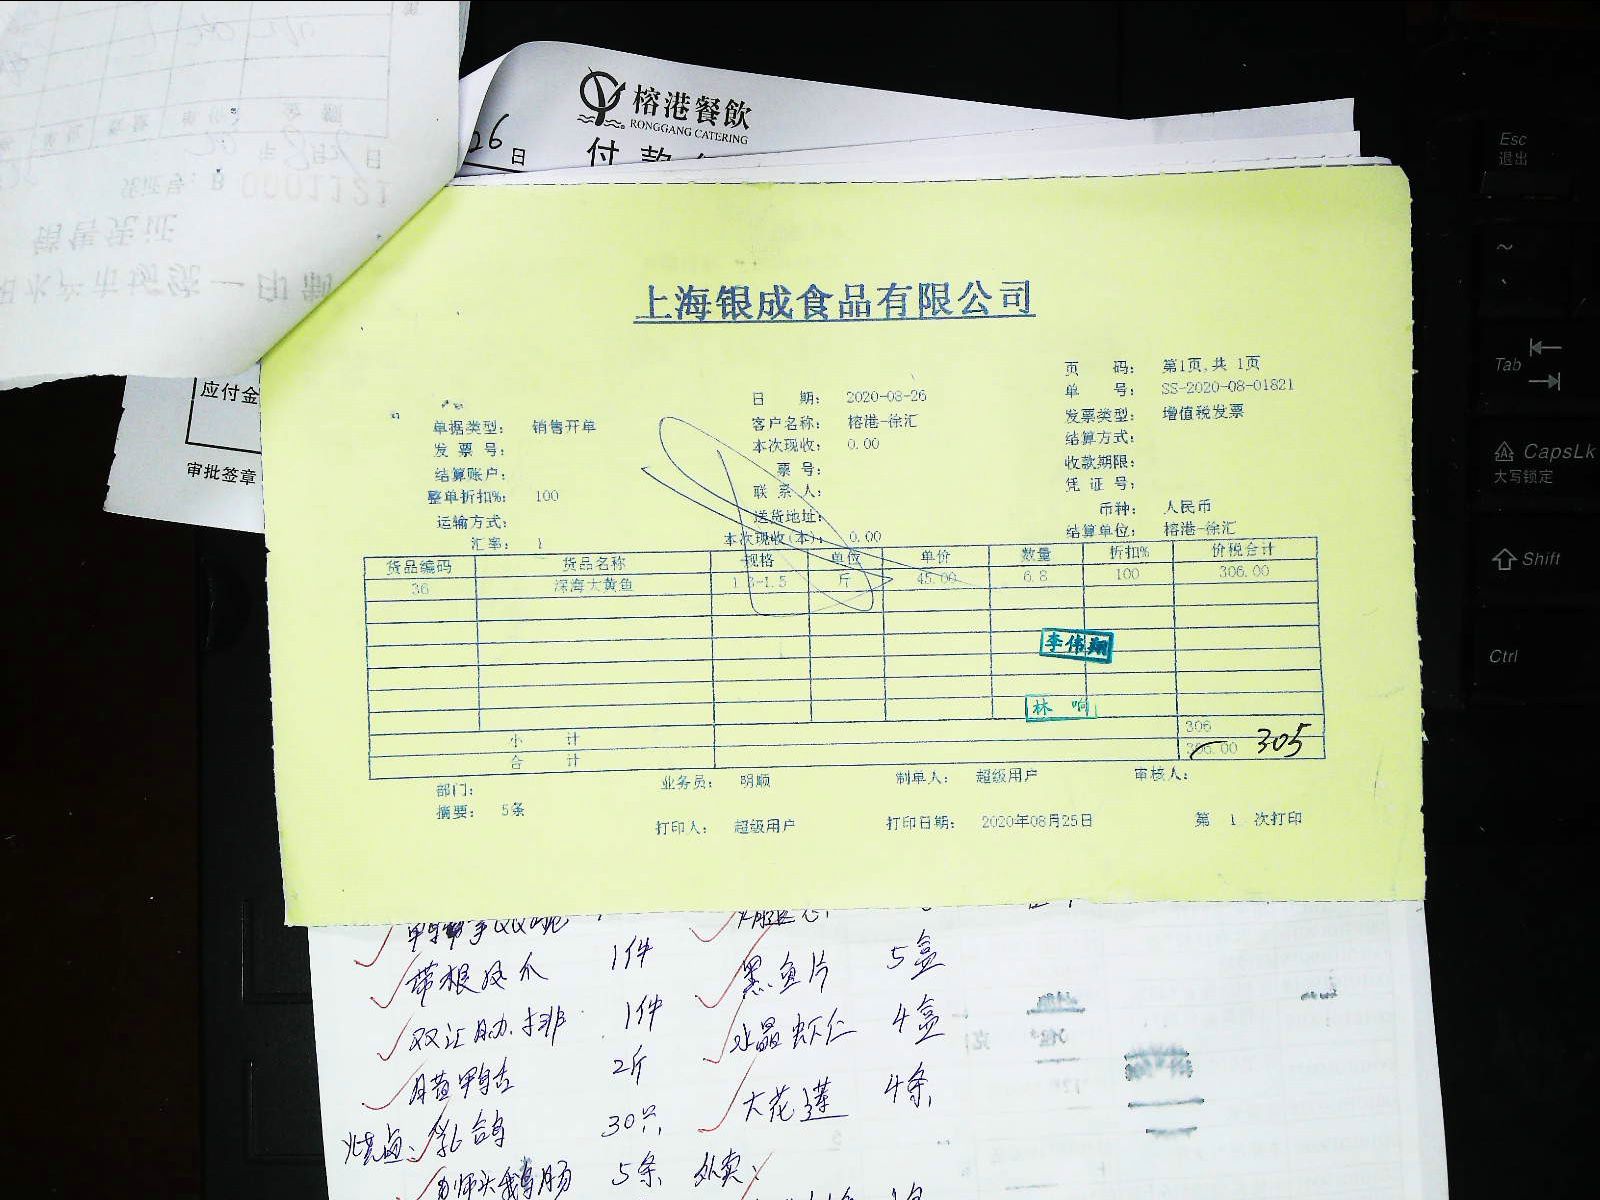 榕港餐飲
RONGGANG CATERING
26日
付款
0001121
应付金
审批签章
上海银成食品有限公司
页 码: 第1页,共 1页
日 期: 2020-08-26
单 号: SS-2020-08-01821
单据类型: 销售开单
客户名称: 榕港-徐汇
发票类型: 增值税发票
发 票 号:
本次现收: 0.00
结算方式:
结算账户:
票 号:
收款期限:
整单折扣%: 100
联 系 人:
凭 证 号:
运输方式:
送货地址:
币种: 人民币
汇率: 1
本次现收(本): 0.00
结算单位: 榕港-徐汇
货品编码 货品名称 规格 单位 单价 数量 折扣% 价税合计
36 深海大黄鱼 1.3-1.5 斤 45.00 6.8 100 306.00
李伟翔
林 响
小 计 306
合 计 306.00 305
部门: 业务员: 明顺 制单人: 超级用户 审核人:
摘要: 5条
打印人: 超级用户 打印日期: 2020年08月25日 第 1 次打印
带根凤爪 1件 黑鱼片 5盒
双汇肋排 1件 水晶虾仁 4盒
2斤 大花莲 4条
烧卤: 乳鸽 30只
5条 外卖:
Esc
退出
~
Tab
CapsLk
大写锁定
Shift
Ctrl